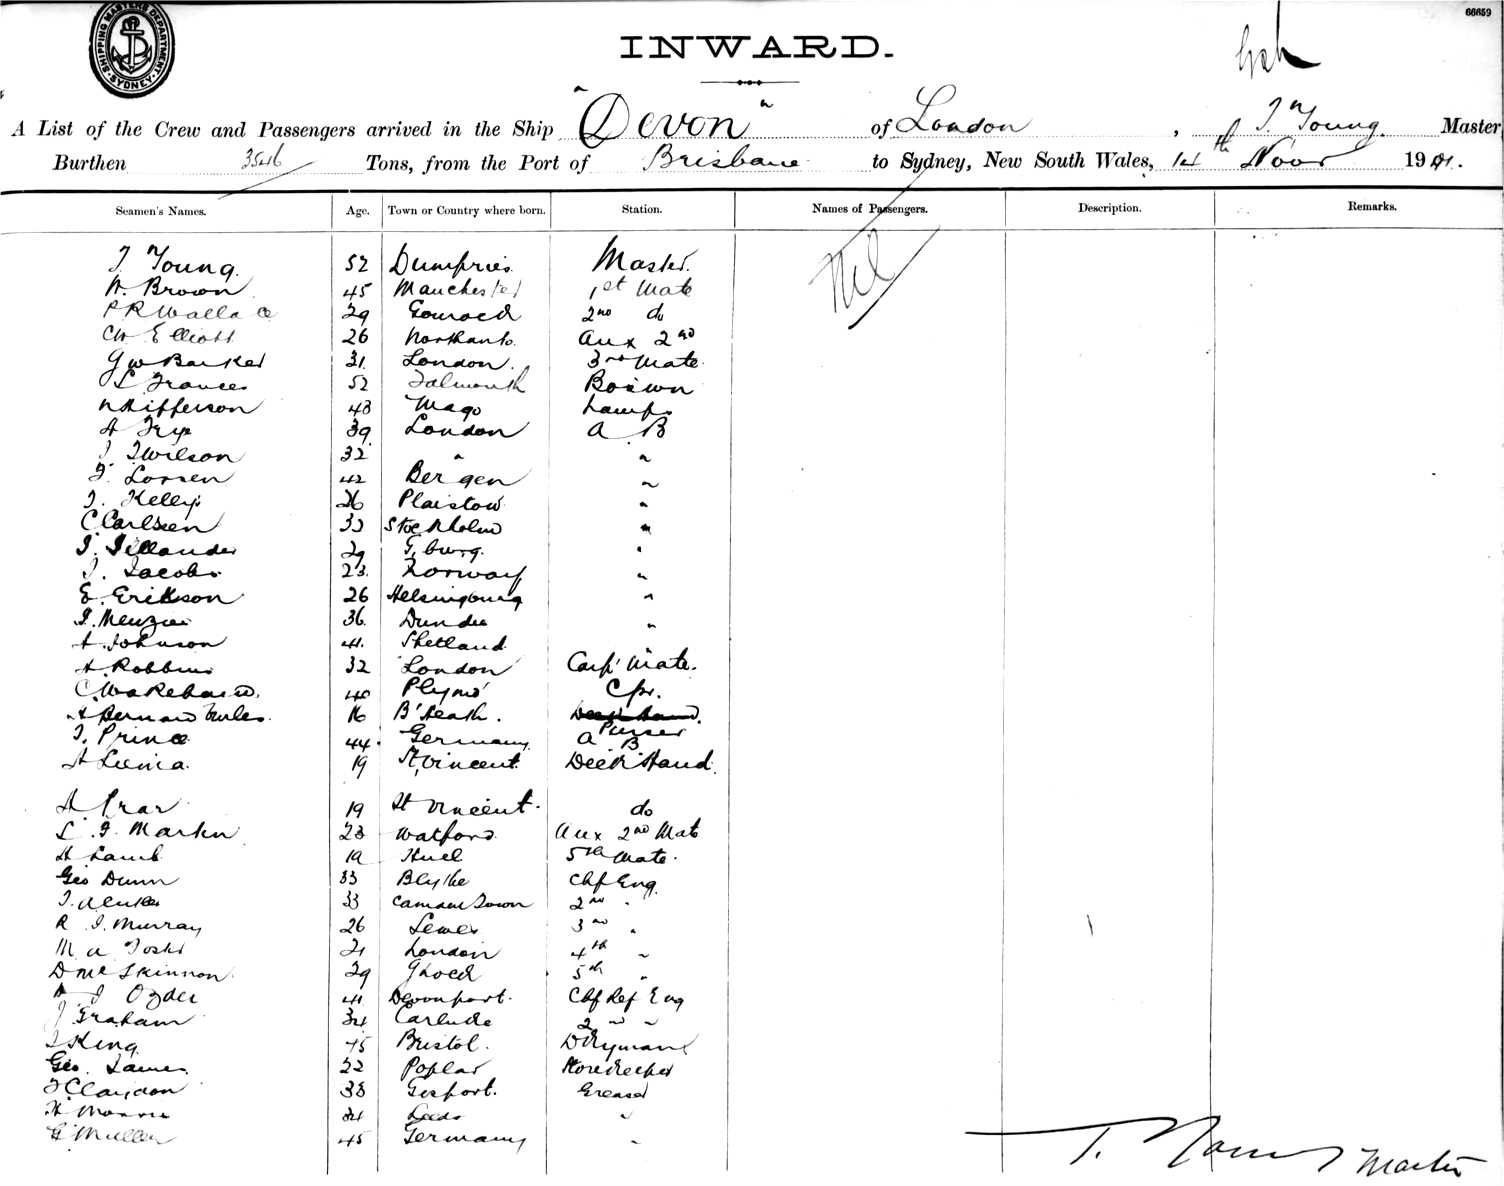 66659
SHIPPING MASTERS DEPARTMENT SYDNEY
INWARD.
A List of the Crew and Passengers arrived in the Ship "Devon" of London, T. Young. Master
Burthen 3546 Tons, from the Port of Brisbane to Sydney, New South Wales, 14th Novr 1901.
Seamen's Names. Age. Town or Country where born. Station. Names of Passengers. Description. Remarks.
Nil
T Young. 52 Dumfries. Master.
W. Brown 45 Manchester 1st Mate
P R Wallace 29 Gourock 2nd do
CW Elliott 26 Northants. Aux 2nd
G W Barker 31. London. 3rd Mate.
L Frances 52 Falmouth Bosiwn
48 Mago Lamps
A Fry 39 London A B
J Wilson 32 " "
Lorsen 42 Bergen "
T. Kelly 26 Plaistow "
C Carlsen 32 Stockholm "
29 G, burg. "
J. Jacobs. 23. Norway "
E. Erikson 26 Helsingburg "
J. Menzies 36. Dundee "
A. Johnson 41. Shetland
A. Robbins 32 London Carp' Mate.
C 40 Plym' Cpr.
16 B'Heath. Purser
J. Prince 44. Germany. A B
A 19 St, Vincent. Deck Hand.
A 19 St Vincent. do
L. J. Martin 23 Watford. Aux 2nd Mate
H Lamb 19 Hull 5th Mate.
Geo Dunn 33 Blythe Chf Eng.
33 Camden Town 2nd "
R. J. Murray 26 Lewes 3rd "
M A 21 London 4th "
D McSkinnon. 29 5th "
41 Devonport. Chf Ref Eng
J Graham 34 Carlisle 2 " "
J King 45 Bristol. Dkyman
Geo. James 22 Poplar Storekeeper
F Claydon 38 Gosport. Greaser
H 34 Leeds "
G Muller 45 Germany "
T. Young Master